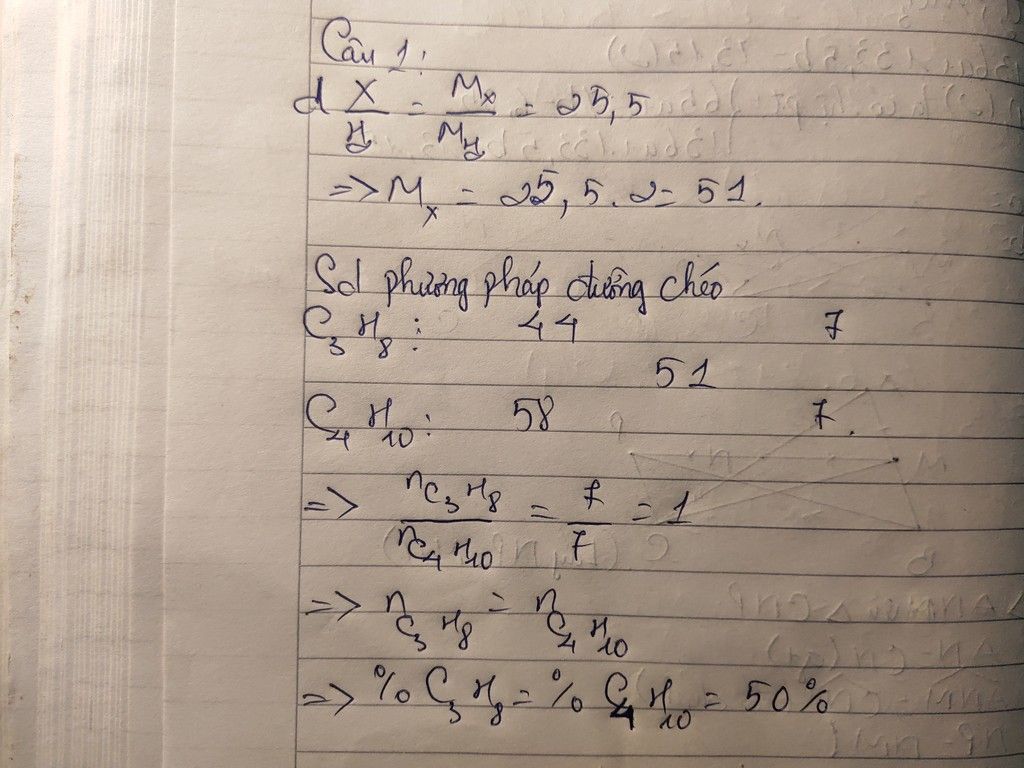 Câu 1:
d X/H2 = Mx/MH2 = 25,5
=> Mx = 25,5.2= 51.
Sd phương pháp đường chéo
C3H8: 44 7
51
C4H10: 58 7.
=> nC3H8/nC4H10 = 7/7 = 1
=> nC3H8 = nC4H10
=> % C3H8 = % C4H10 = 50%